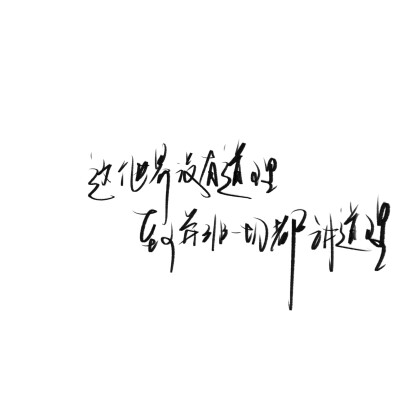 这世界没有道理
并非一切都讲道理